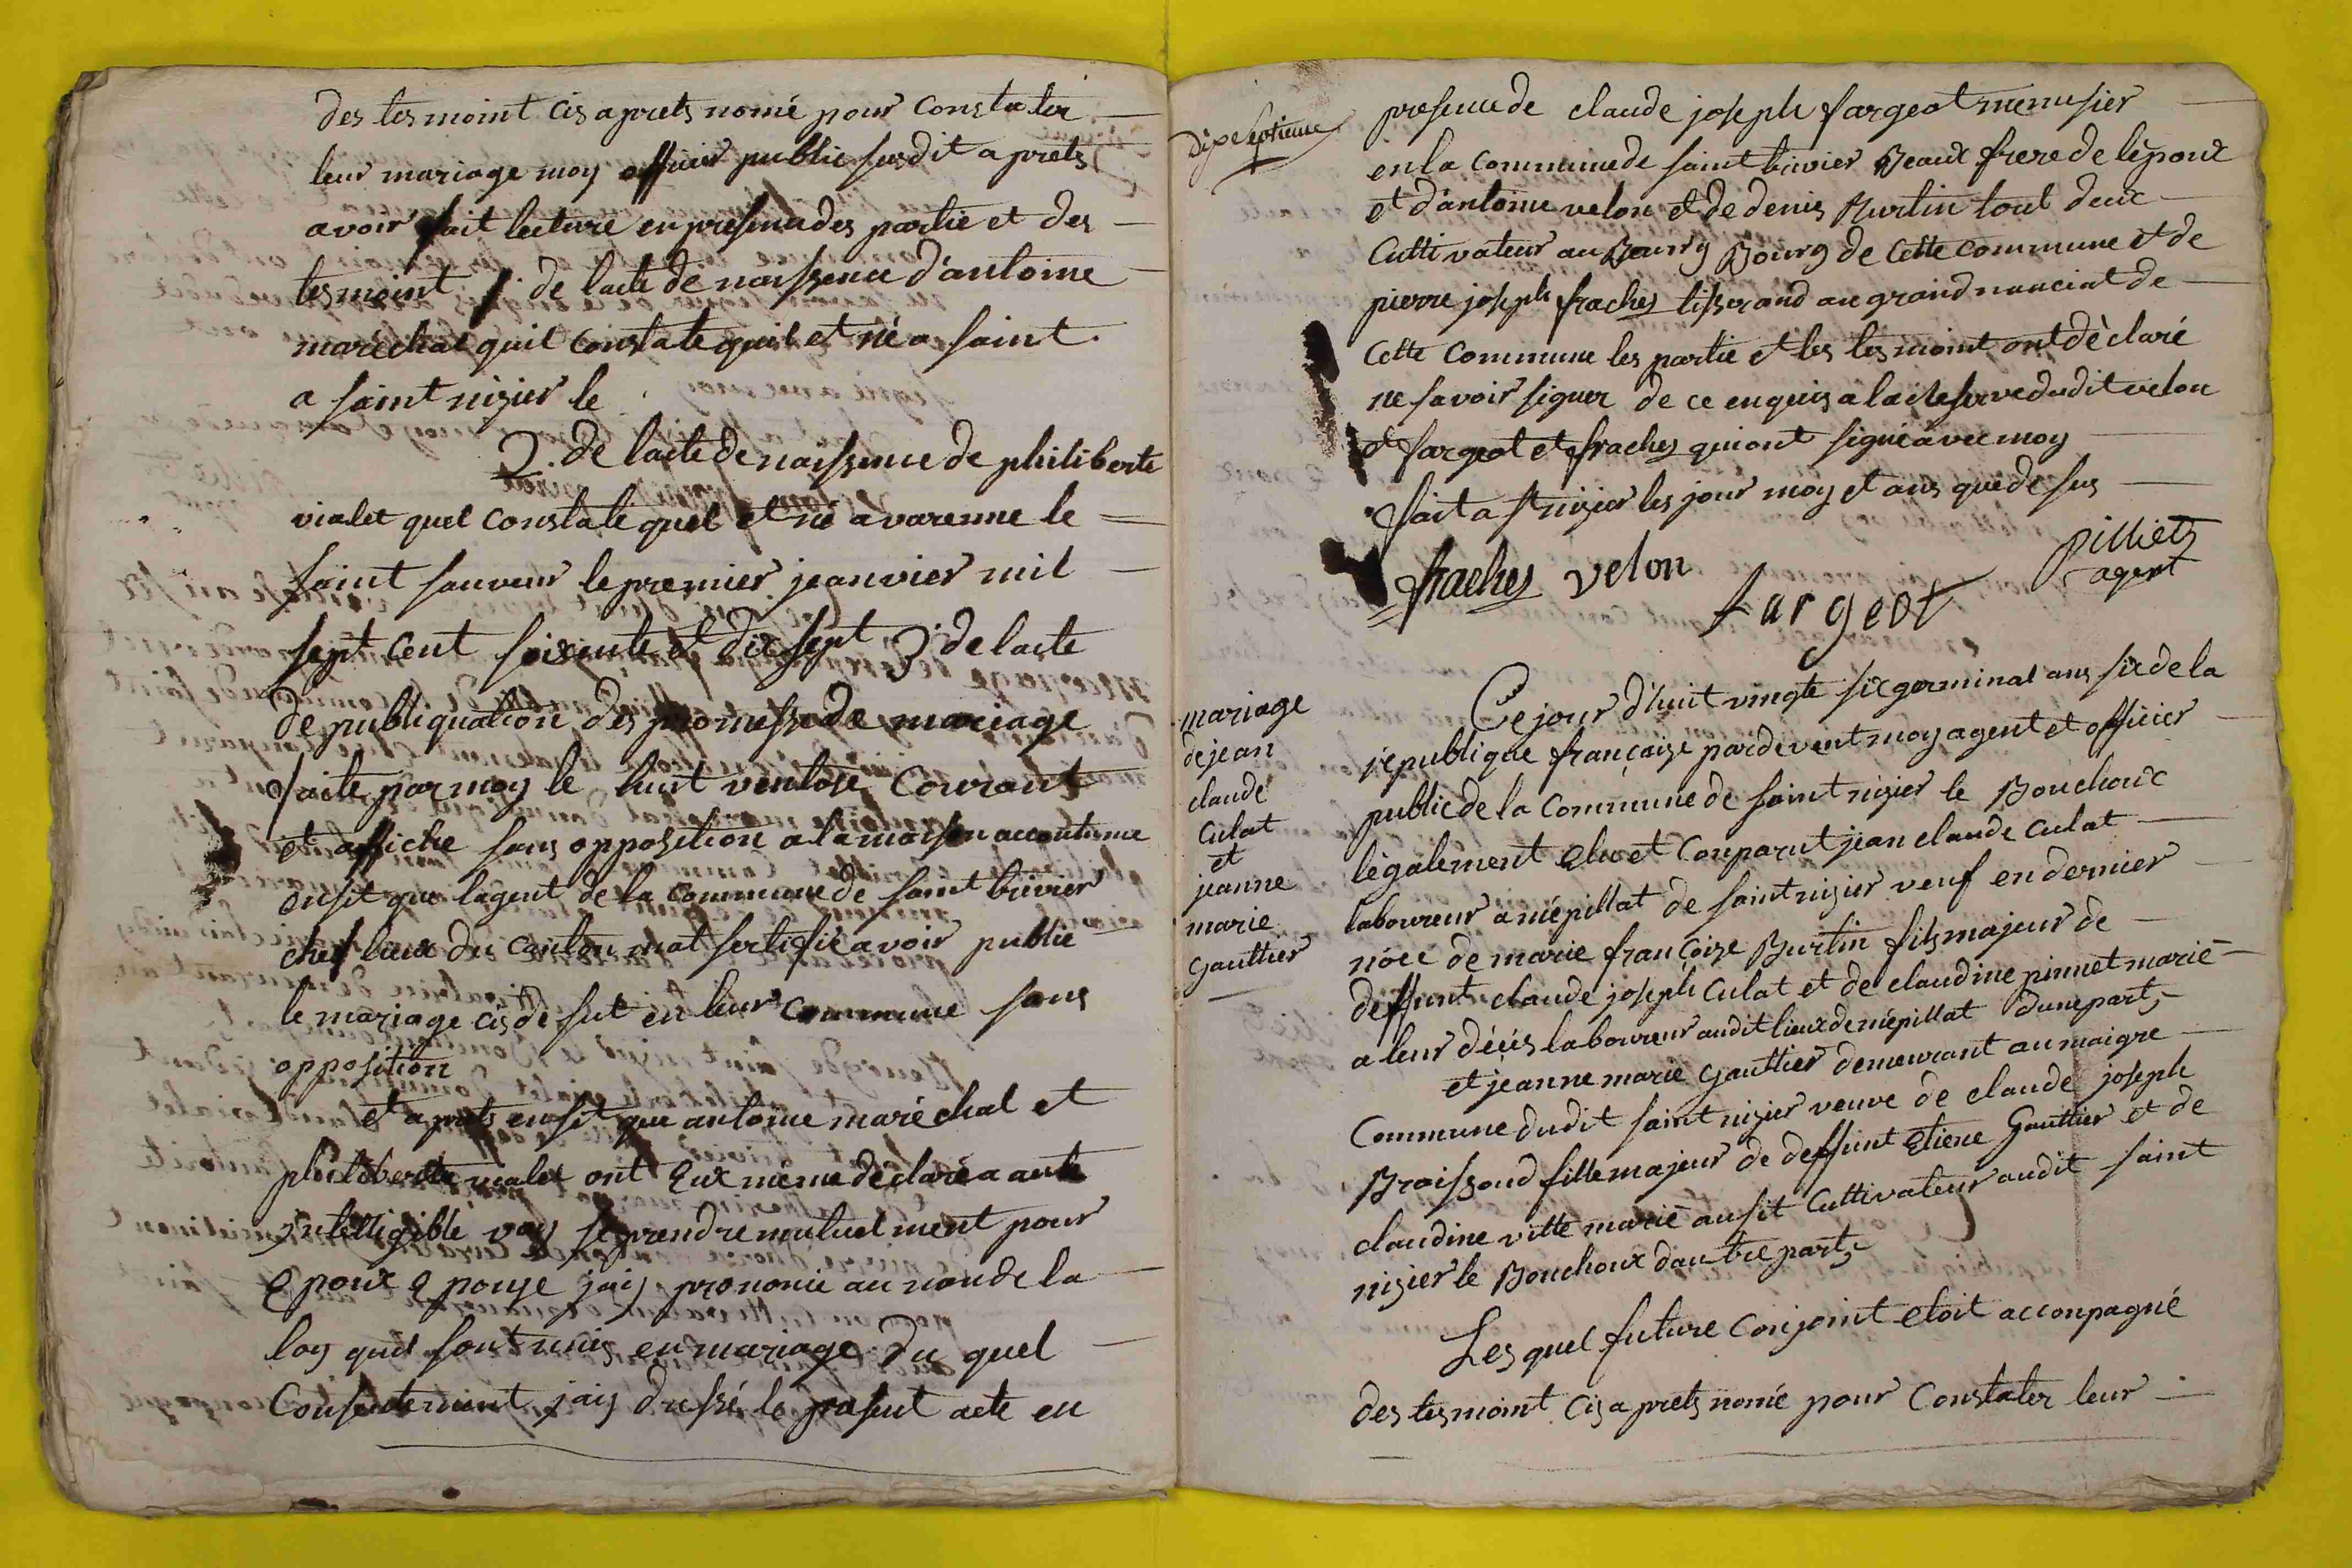 des tesmoint cis aprets nomé pour constater
leur mariage moy officier public susdit aprets
avoir fait lecture en presence des partie et des
tesmoint 1. de lacte de naissence d'antoine
maréchal quil constate quil et né a saint
a saint nizier le
2. de lacte de naissence de philiberte
vialet quel constate quel et né a varenne le
saint sauveur le premier jeanvier mil
sept cent soixente et dix sept 3. de lacte
de publiquation des promesse de mariage
faite par moy le huit ventose courant
et affiche sans opposition a la maison accoutume
ensit que lagent de la commune de saint trivier
chef lieux du canton mat sertifié avoir publié
le mariage cis desut en leur commune sans
opposition
et aprets ensit que antoine maréchal et
philiberte vialet ont Eux méme déclaré a aute
intelligible voy se prendre mutuelment pour
Epoux Epouze jais prononié au nom de la
loy quil sont unis en mariage du quel
Consentement jais dressé le present acte en
dixeseptieme
presence de claude joseph fargeot menusier
en la commune de saint trivier Beaux frere de lépoux
et d'antoine velon et de denis Burtin tout deux
Cultivateur au Bourg Bourg de Cette commune et de
pierre joseph fraches tisserand au grand nanciat de
Cette Commune les partie et les tesmoint ont déclaré
ne savoir signer de ce enquis a la reserve dudit velon
et fargeot et fraches qui ont signé avec moy
fait a st nizier les jour moy et ans que desus
fraches velon
fargeot
pilliets
agent
mariage
de jean
claude
Culat
et
jeanne
marie
Gauttier
Ce jour d'huit vingte six germinal ans six de la
république française pardevent moy agent et officier
public de la Commune de saint nizier le Bouchoux
légalement elu et Comparut jean claude Culat
laboureur a mépillat de saint nizier veuf en dernier
nóce de marie françoize Burtin fils majeur de
deffunt claude joseph Culat et de claudine pinnet marié
a leur décés laboureur audit lieux de mépillat dune part,
et jeanne marie Gauttier demeurant au maigre
Commune dudit saint nizier veuve de claude joseph
Broissoud fille majeur de deffunt Etiene Gauttier et de
claudine vitte marié ausit Cultivateur audit saint
nizier le Bouchoux dautre part,
Les quel future Conjoint etoit acconpagné
des tesmoint cis aprets nomé pour Constater leur